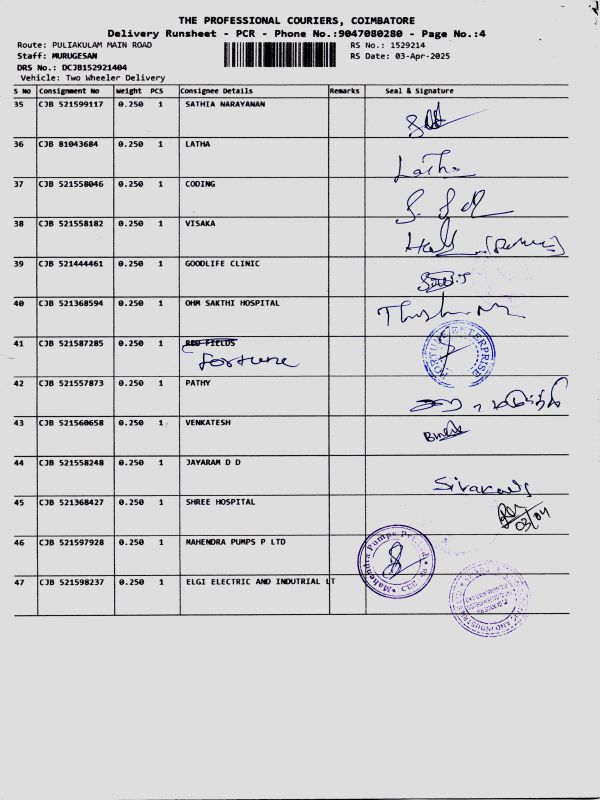 THE PROFESSIONAL COURIERS, COIMBATORE
Delivery Runsheet - PCR - Phone No.:9047080280 - Page No.:4
Route: PULIAKULAM MAIN ROAD RS No.: 1529214
Staff: MURUGESAN RS Date: 03-Apr-2025
DRS No.: DCJB152921404
Vehicle: Two Wheeler Delivery
S No Consignment No Weight PCS Consignee Details Remarks Seal & Signature
35 CJB 521599117 0.250 1 SATHIA NARAYANAN
36 CJB 81043684 0.250 1 LATHA Latha
37 CJB 521558046 0.250 1 CODING
38 CJB 521558182 0.250 1 VISAKA
39 CJB 521444461 0.250 1 GOODLIFE CLINIC
40 CJB 521368594 0.250 1 OHM SAKTHI HOSPITAL
41 CJB 521587285 0.250 1 RED FIELDS
Fortune FORTUNE ENTERPRISE
42 CJB 521557873 0.250 1 PATHY
43 CJB 521560658 0.250 1 VENKATESH
44 CJB 521558248 0.250 1 JAYARAM D D
45 CJB 521368427 0.250 1 SHREE HOSPITAL
03/04
46 CJB 521597928 0.250 1 MAHENDRA PUMPS P LTD Mahendra Pumps
47 CJB 521598237 0.250 1 ELGI ELECTRIC AND INDUTRIAL LT